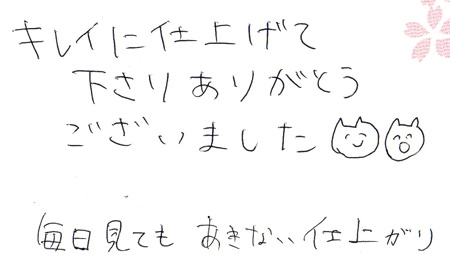 キレイに仕上げて
下さりありがとう
ございました
毎日見ても あきない仕上がり